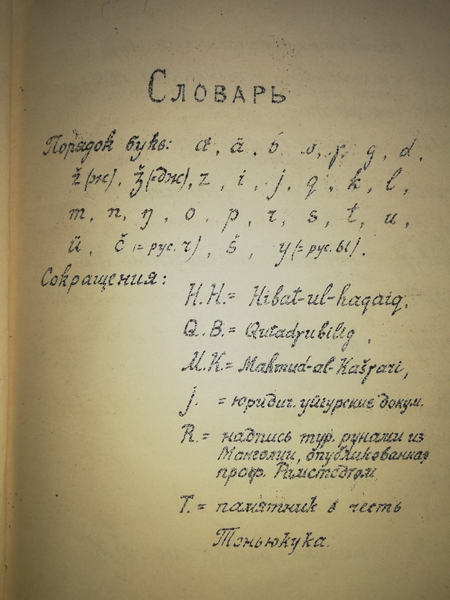 Словарь
Порядок букв: a, ä, b, v, ɣ, g, d,
ž (ж), ǯ (=дж), z, i, j, q, k, l,
m, n, ŋ, o, p, r, s, t, u,
ü, č (= рус. ч), š, y (= рус. ы).
Сокращения:
H.H. = Hibat-ul-haqaiq,
Q.B. = Qutadɣubilig,
M.K. = Mahmud-al-Kašɣari,
j. = юридич. уйгурские докум.
R. = надпись тур. рунами из
Монголии, опубликованная
проф. Рамстедтом
T. = памятник в честь
Тоньюкука.